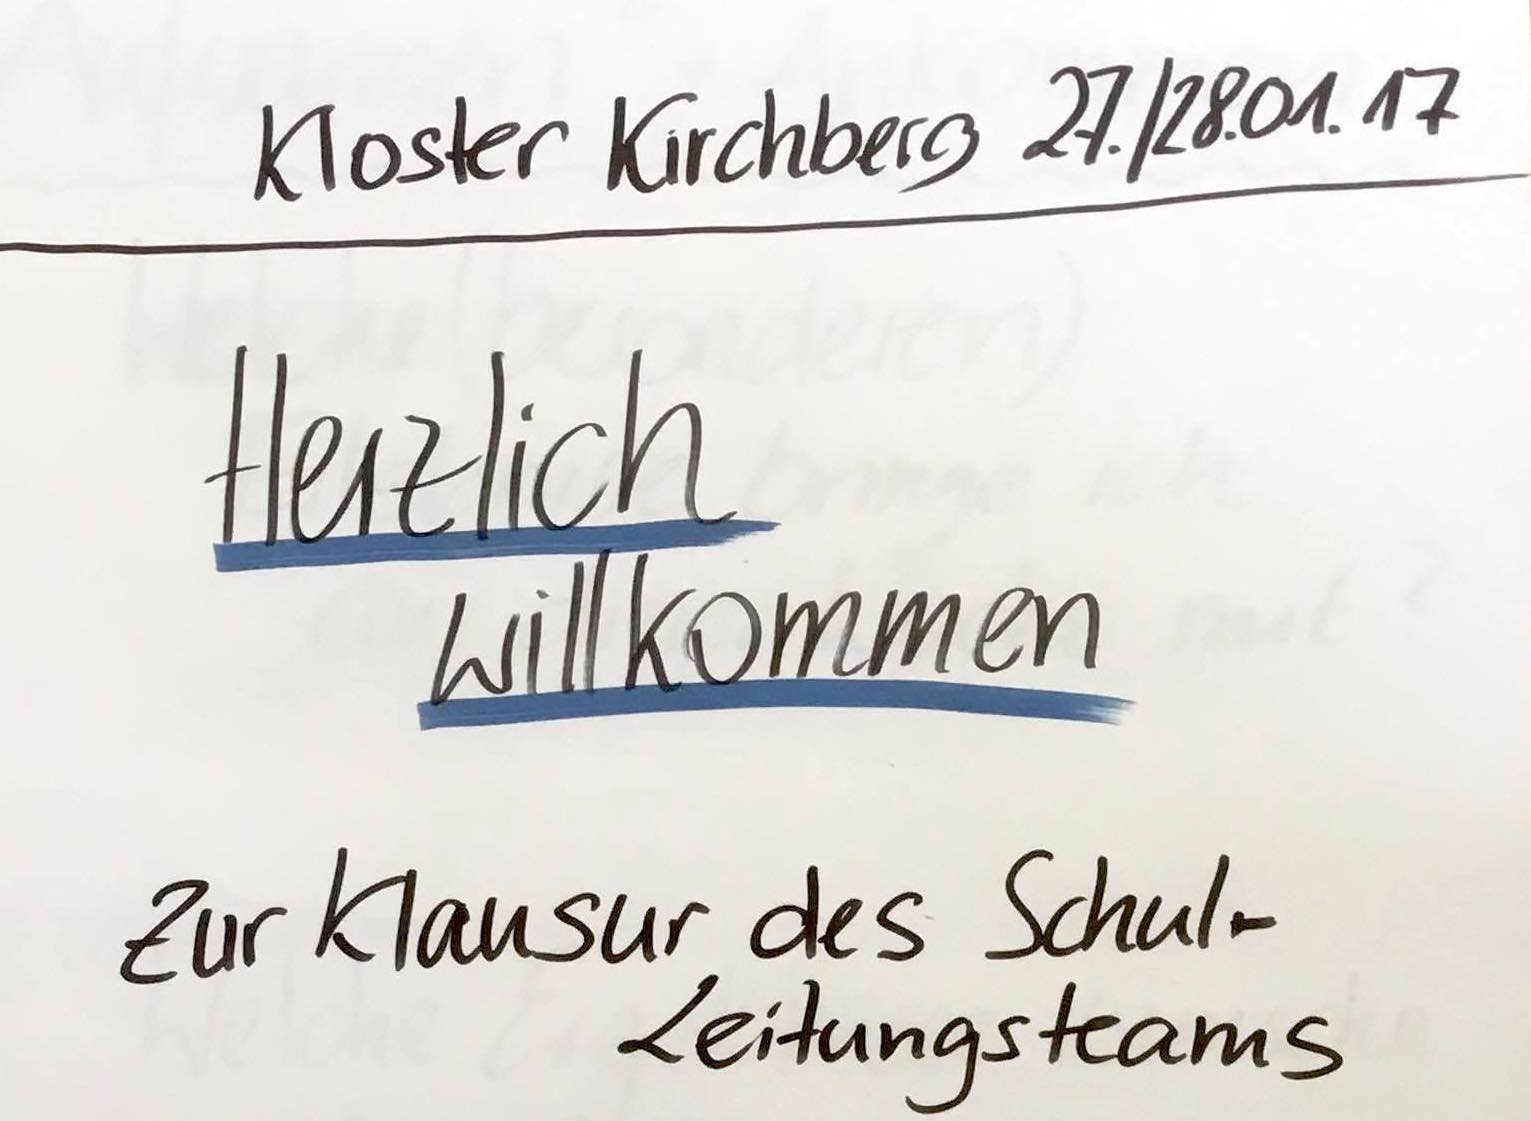 Kloster Kirchberg 27./28.01.17
Herzlich
willkommen
zur Klausur des Schul-
Leitungsteams